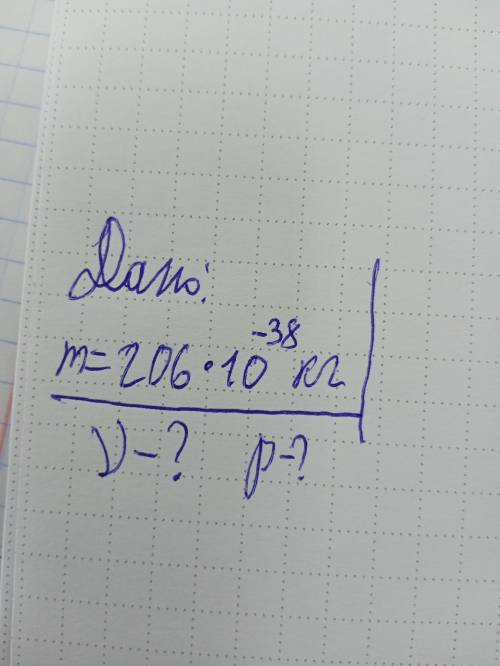 Дано:
m=206·10⁻³⁸ кг
ν-? p-?